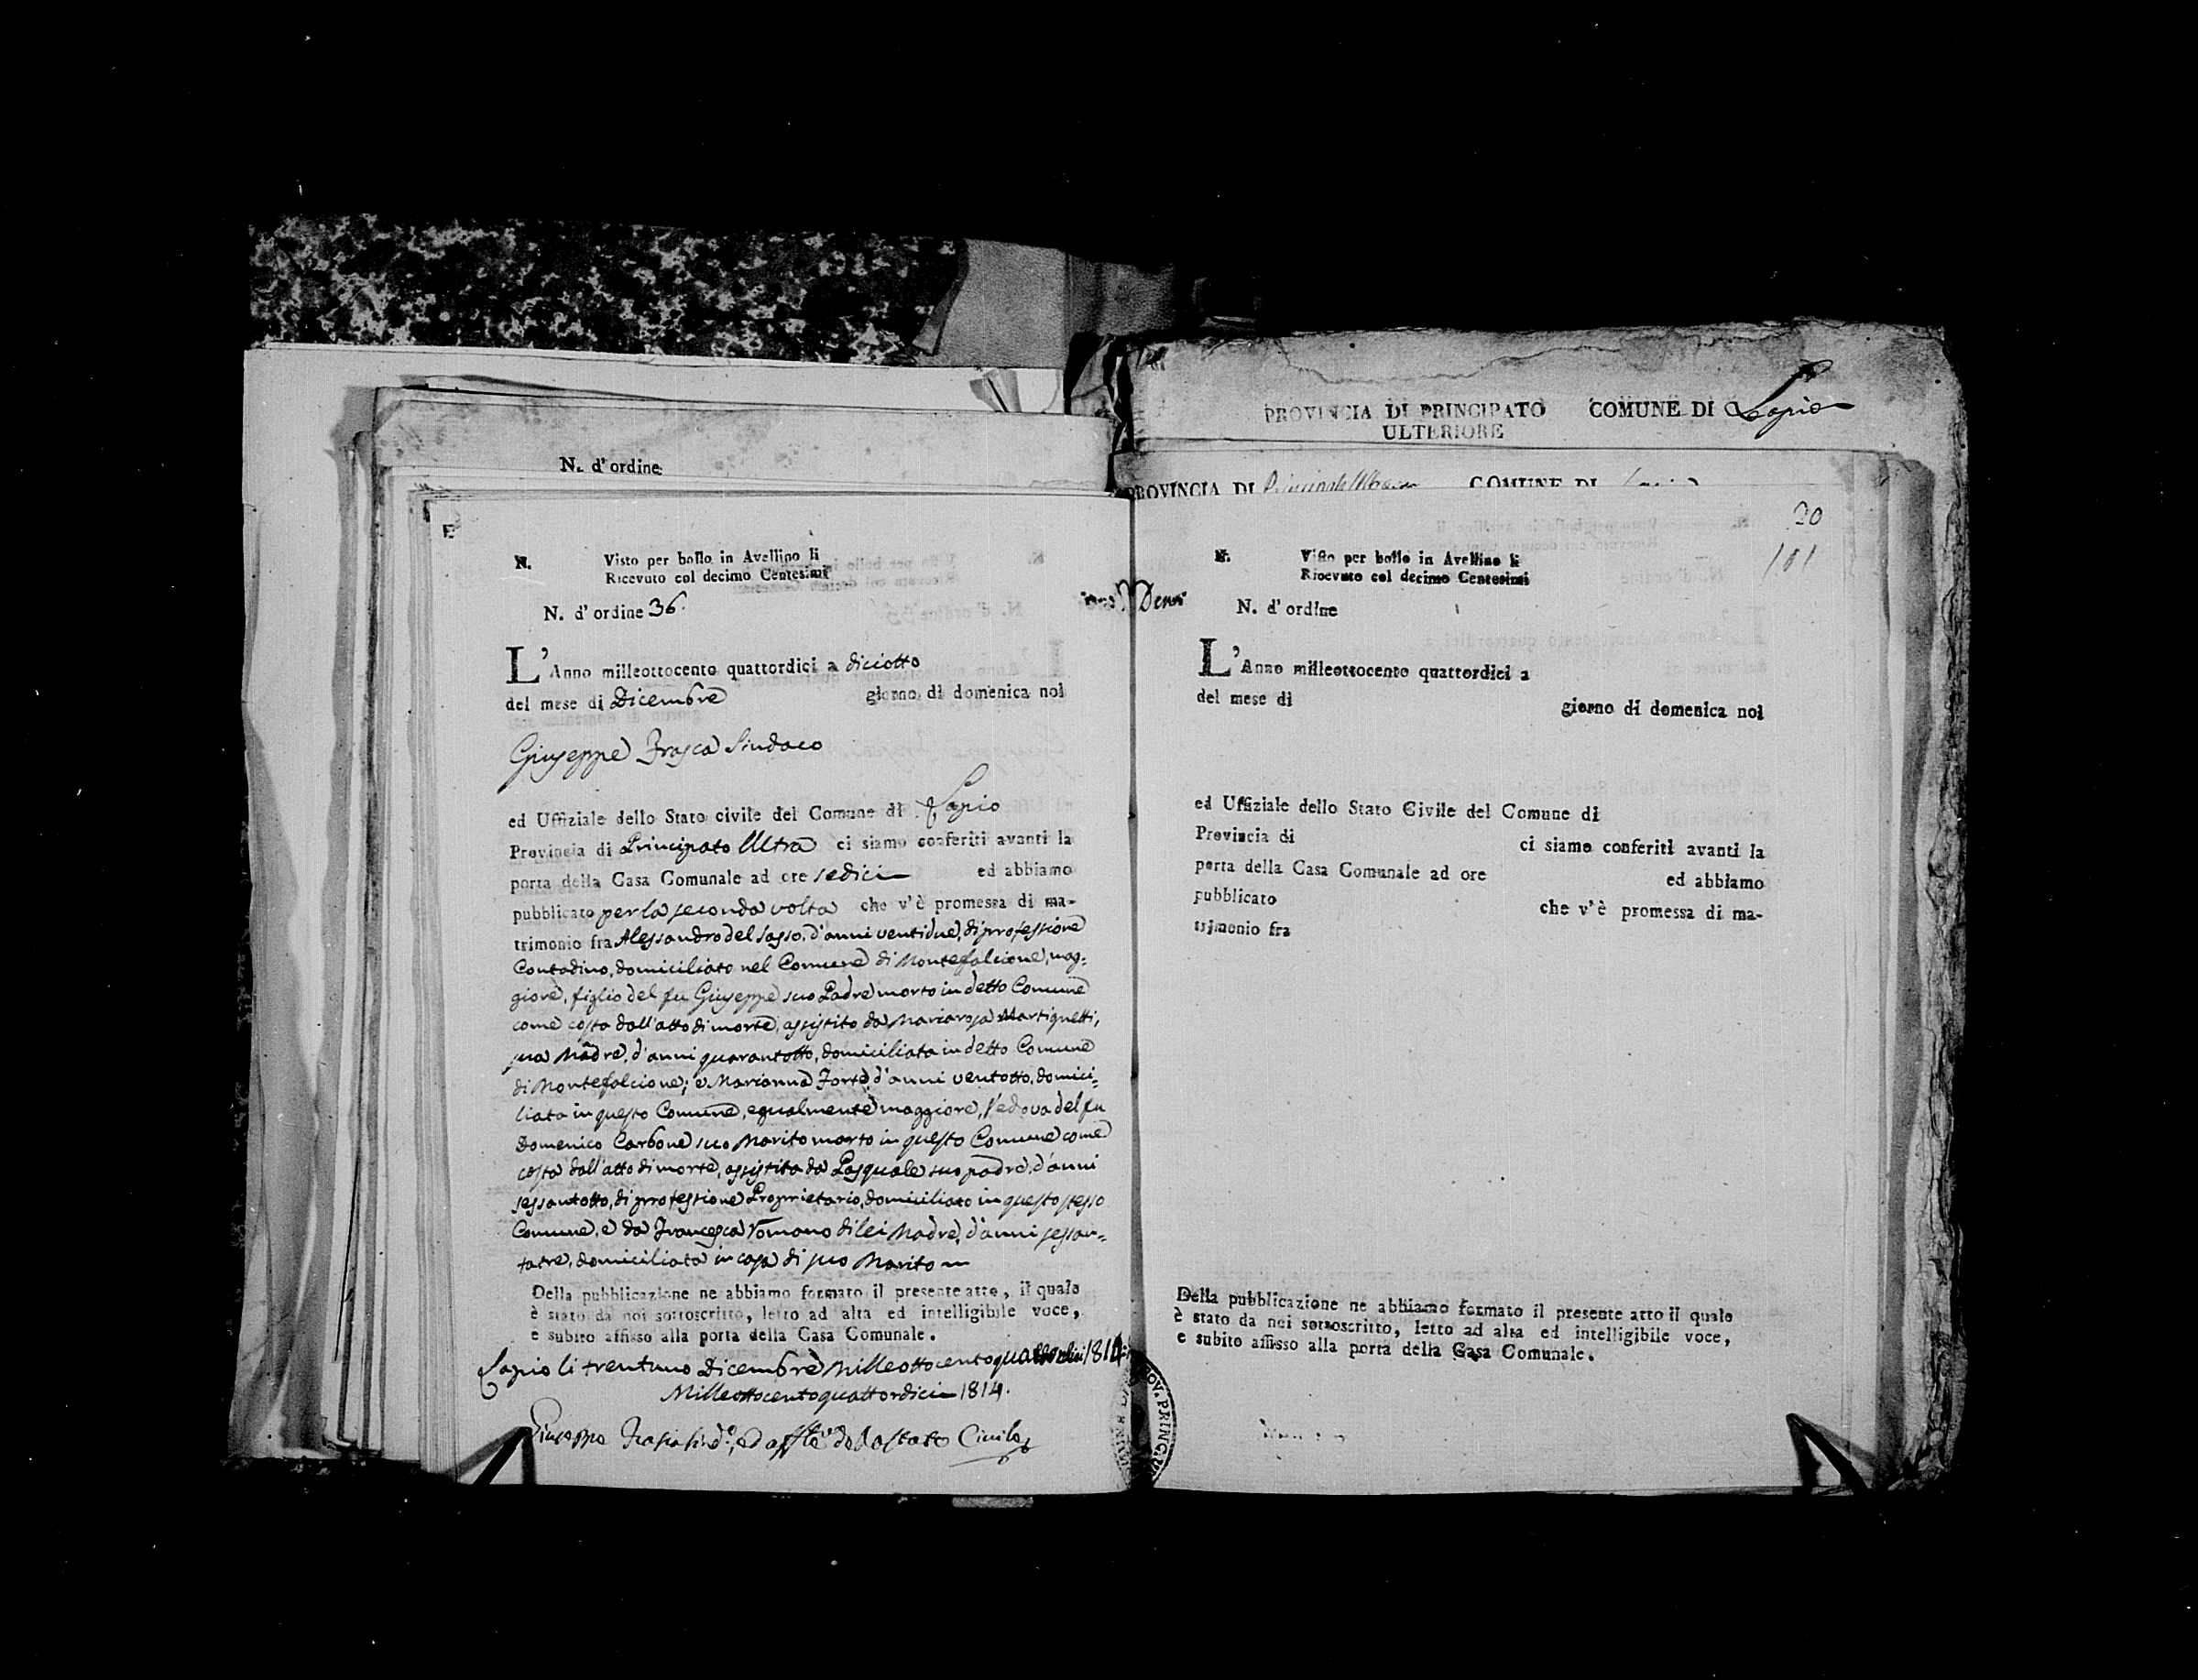 N. d'ordine
E
N. Visto per bollo in Avellino li
Ricevuto col decimo Centesimi
N. d'ordine 36.
L'Anno milleottocento quattordici a diciotto
del mese di Dicembre giorno di domenica noi
Giuseppe Frasca Sindaco
ed Uffiziale dello Stato civile del Comune di Lapio
Provincia di Principato Ultra ci siamo conferiti avanti la
porta della Casa Comunale ad ore sedici ed abbiamo
pubblicato per la seconda volta che v'è promessa di ma-
trimonio fra Alessandro del Sasso, d'anni ventidue, di professione
Contadino, domiciliato nel Comune di Montefalcione, mag=
giore, figlio del fu Giuseppe suo Padre morto in detto Comune
come costa dall'atto di morte, assistito da Mariarosa Martignetti,
sua Madre, d'anni quarantotto, domiciliata in detto Comune
di Montefalcione; e Marianna Forte, d'anni ventotto, domici=
liata in questo Comune, egualmente maggiore, Vedova del fu
Domenico Carbone suo Marito morto in questo Comune come
costa dall'atto di morte, assistita da Pasquale suo padre, d'anni
sessantotto, di professione Proprietario, domiciliato in questo stesso
Comune, e da Francesca Romano di lei Madre, d'anni sessan=
tatre, domiciliata in casa di suo Marito
Della pubblicazione ne abbiamo formato il presente atto, il quale
è stato da noi sottoscritto, letto ad alta ed intelligibile voce,
e subito affisso alla porta della Casa Comunale.
Lapio li trentuno Dicembre milleottocentoquattordici 1814
Milleottocentoquattordici 1814.
Giuseppe Frasca Sind.º, ed Uff.le dello Stato Civile
PROVINCIA DI PRINCIPATO COMUNE DI Lapio
ULTERIORE
PROVINCIA DI COMUNE DI
20
101
N. Visto per bollo in Avellino li
Ricevuto col decimo Centesimi
N. d'ordine
L'Anno milleottocento quattordici a
del mese di giorno di domenica noi
ed Uffiziale dello Stato Civile del Comune di
Provincia di ci siamo conferiti avanti la
porta della Casa Comunale ad ore ed abbiamo
pubblicato che v'è promessa di ma-
trimonio fra
Della pubblicazione ne abbiamo formato il presente atto il quale
è stato da noi sottoscritto, letto ad alta ed intelligibile voce,
e subito affisso alla porta della Casa Comunale.